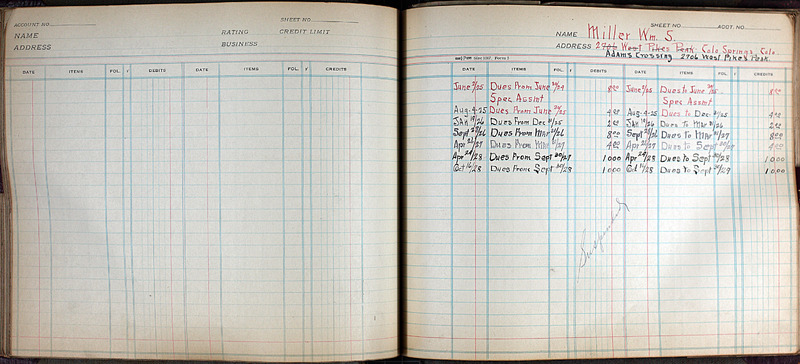 SHEET NO.
ACCOUNT NO.
RATING CREDIT LIMIT
NAME
BUSINESS
ADDRESS
DATE ITEMS FOL. DEBITS DATE ITEMS FOL. CREDITS
SHEET NO. ACCT. NO.
NAME Miller Wm. S.
ADDRESS 2706 West Pikes Peak. Colo Springs, Colo.
Adams Crossing 2706 West Pikes Peak.
DATE ITEMS FOL. DEBITS DATE ITEMS FOL. CREDITS
June /25 Dues From June 30/24 8 00 June /25 Dues to June 30/25 8 00
Spec Assint Spec Assint
Aug-4-25 Dues From June 30/25 4 00 Aug-4-25 Dues to Dec 31/25 4 00
Jan 19/26 Dues From Dec 31/25 2 00 Jan 19/26 Dues To Mar 31/26 2 00
Sept /26 Dues From Mar 31/26 8 00 Sept /26 Dues To Mar 31/27 8 00
Apr /27 Dues From Mar 31/27 4 00 Apr /27 Dues to Sept 30/27 4 00
Apr 24/28 Dues From Sept 30/27 10 00 Apr 24/28 Dues to Sept 30/28 10 00
Oct 16/28 Dues From Sept 30/28 10 00 Oct 16/28 Dues To Sept 30/29 10 00
Suspended